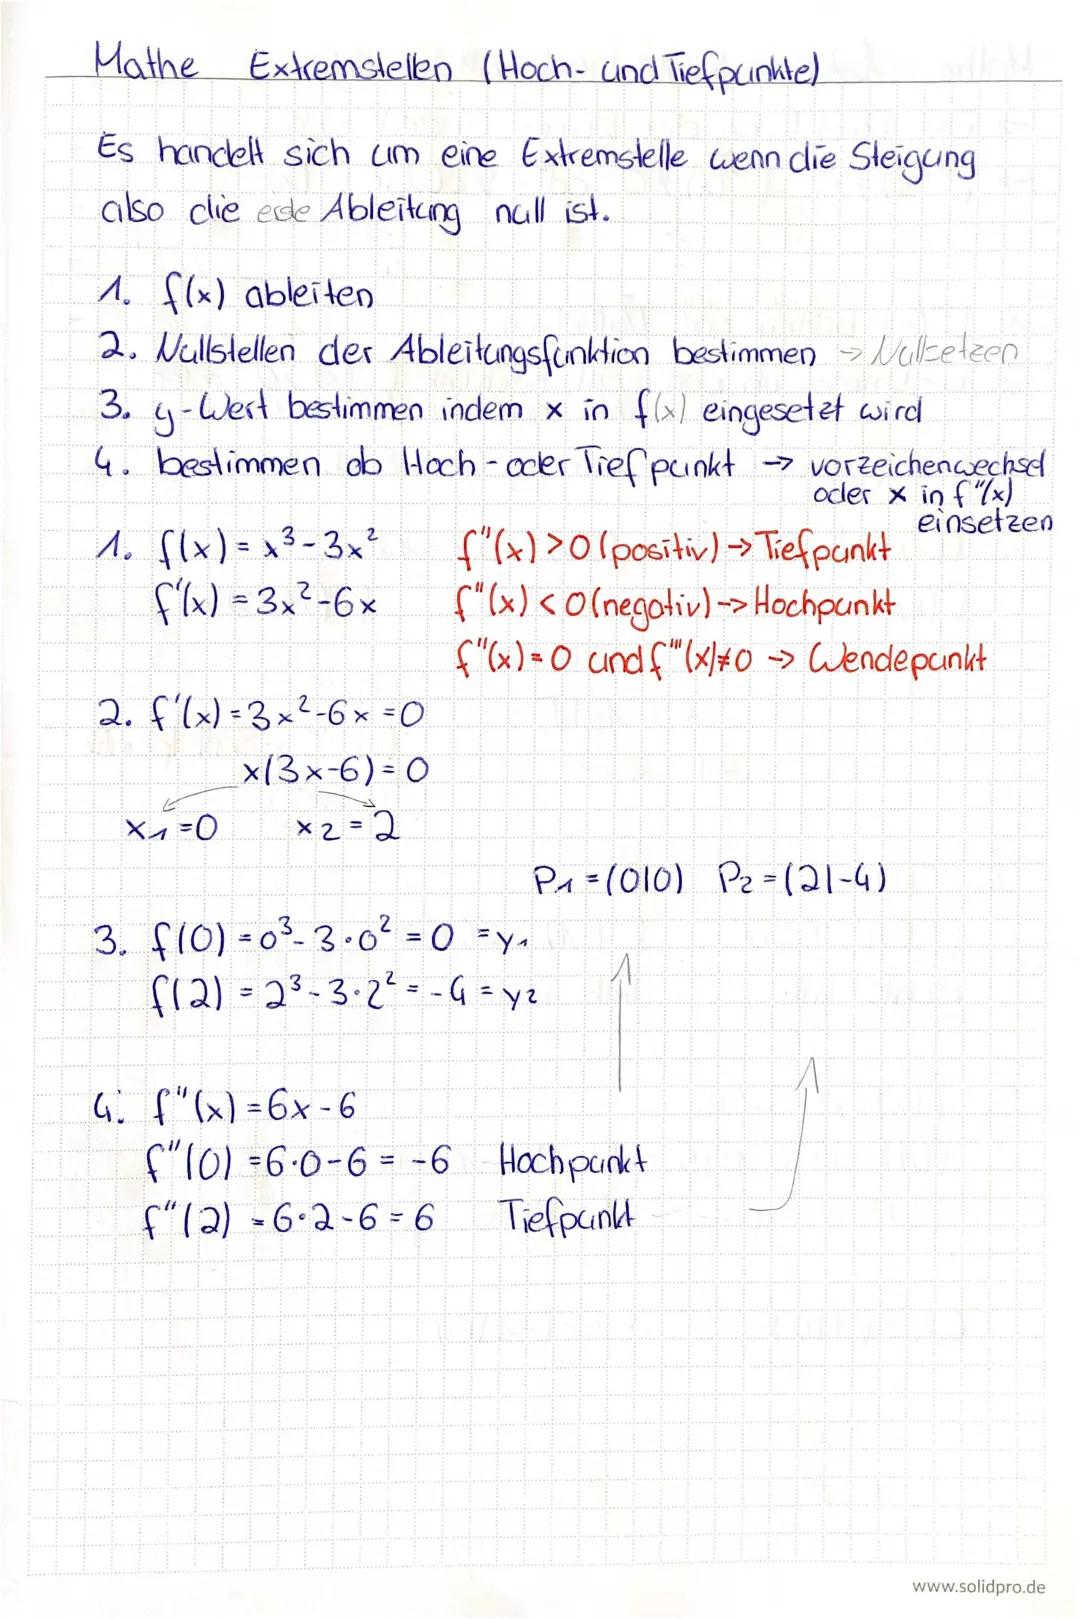 Mathe Extremstellen (Hoch- und Tiefpunkte)
Es handelt sich um eine Extremstelle wenn die Steigung
also die erste Ableitung null ist.
1. f(x) ableiten
2. Nullstellen der Ableitungsfunktion bestimmen → Nullsetzen
3. y-Wert bestimmen indem x in f(x) eingesetzt wird
4. bestimmen ob Hoch- oder Tiefpunkt → vorzeichenwechsel
oder x in f"(x)
einsetzen
1. f(x) = x³-3x²
f'(x) = 3x²-6x
f"(x) > 0 (positiv) → Tiefpunkt
f"(x) < 0 (negativ) → Hochpunkt
f"(x) = 0 und f'''(x) ≠ 0 → Wendepunkt
2. f'(x) = 3x²-6x = 0
x(3x-6) = 0
x₁ = 0 x₂ = 2
P₁ = (0|0) P₂ = (2|-4)
3. f(0) = 0³-3·0² = 0 = y₁
f(2) = 2³-3·2² = -4 = y₂
4. f"(x) = 6x-6
f"(0) = 6·0-6 = -6 Hochpunkt
f"(2) = 6·2-6 = 6 Tiefpunkt
www.solidpro.de